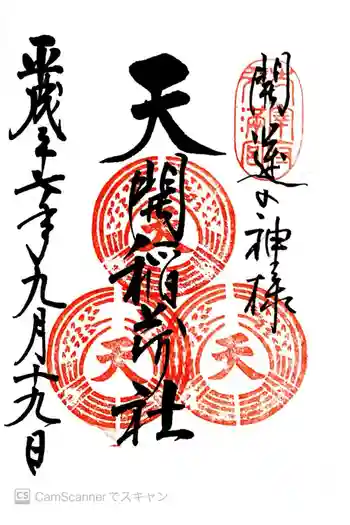 開運の神様
天開稲荷社
平成二十六年九月十九日
天
天
CamScannerでスキャン